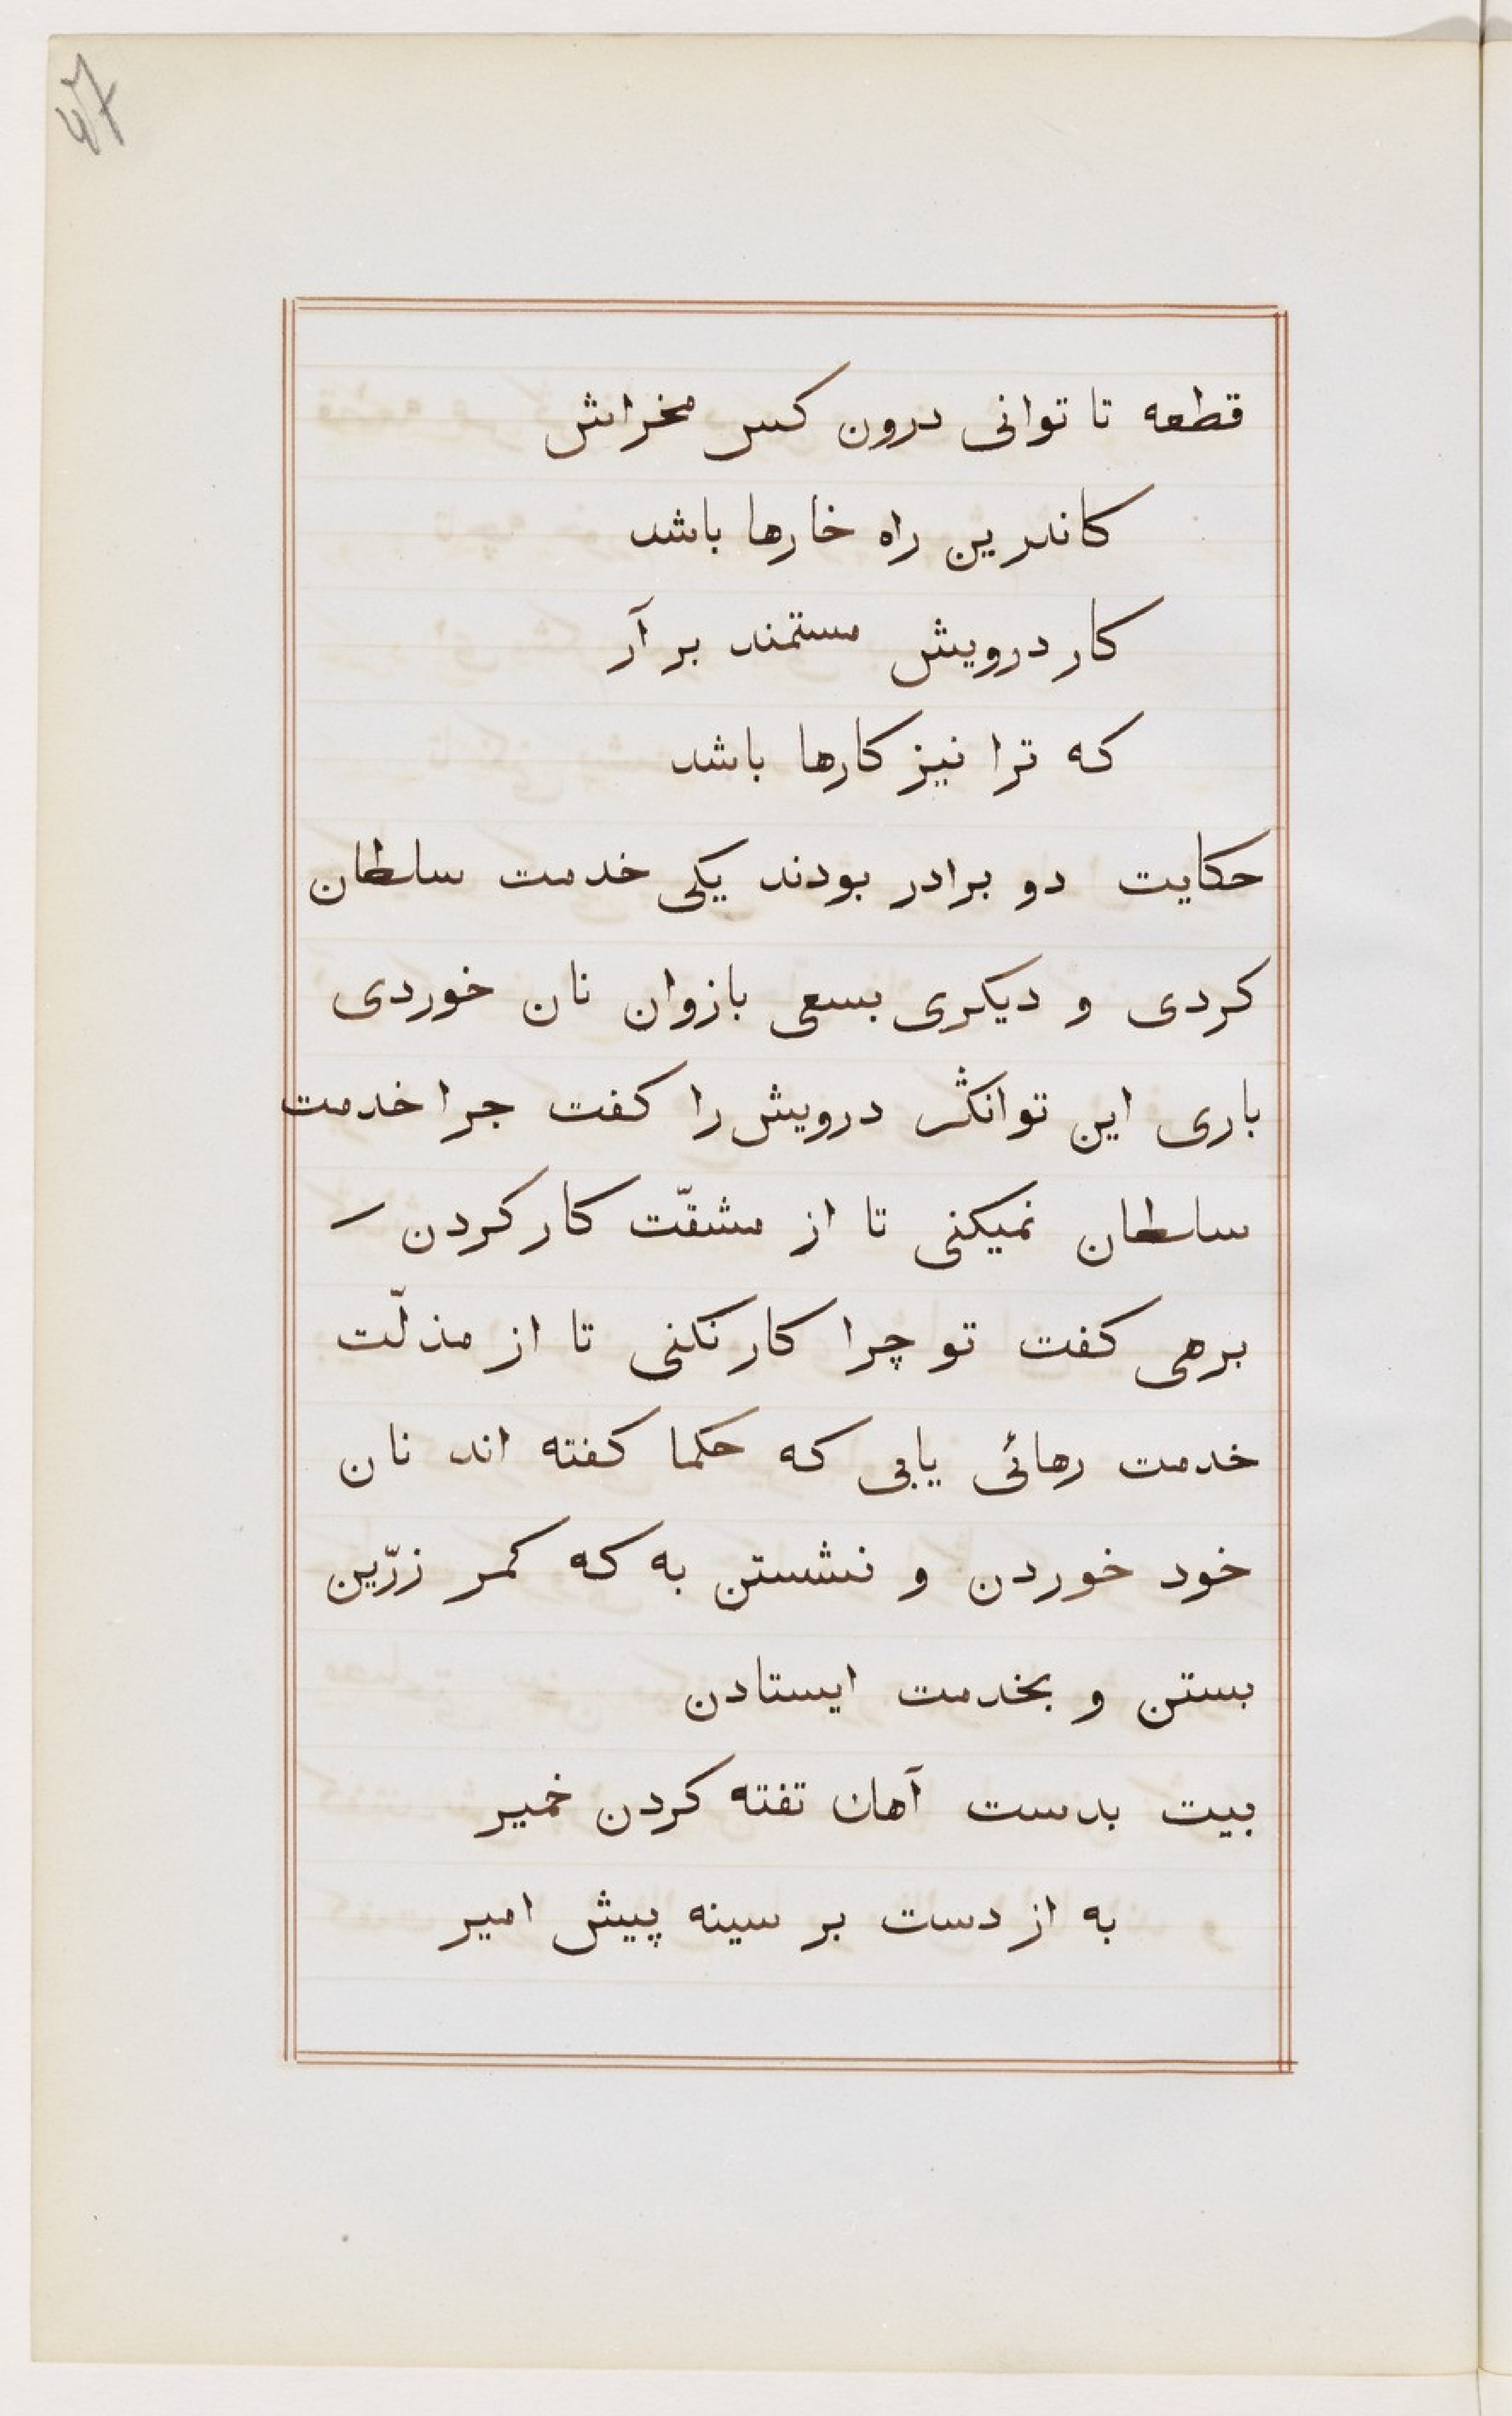 47
قطعه تا توانی درون کس مخراش
کاندرین راه خارها باشد
کار درویش مستمند بر آر
که ترا نیز کارها باشد
حکایت دو برادر بودند یکی خدمت سلطان
کردی و دیکری بسعی بازوان نان خوردی
باری این توانکر درویش را کفت جرا خدمت
سلطان نمیکنی تا از مشقّت کار کردن
برهی کفت تو چرا کار نکنی تا از مذلّت
خدمت رهائی یابی که حکما کفته اند نان
خود خوردن و نشستن به که کمر زرّین
بستن و بخدمت ایستادن
بیت بدست آهان تفته کردن خمیر
به از دست بر سینه پیش امیر